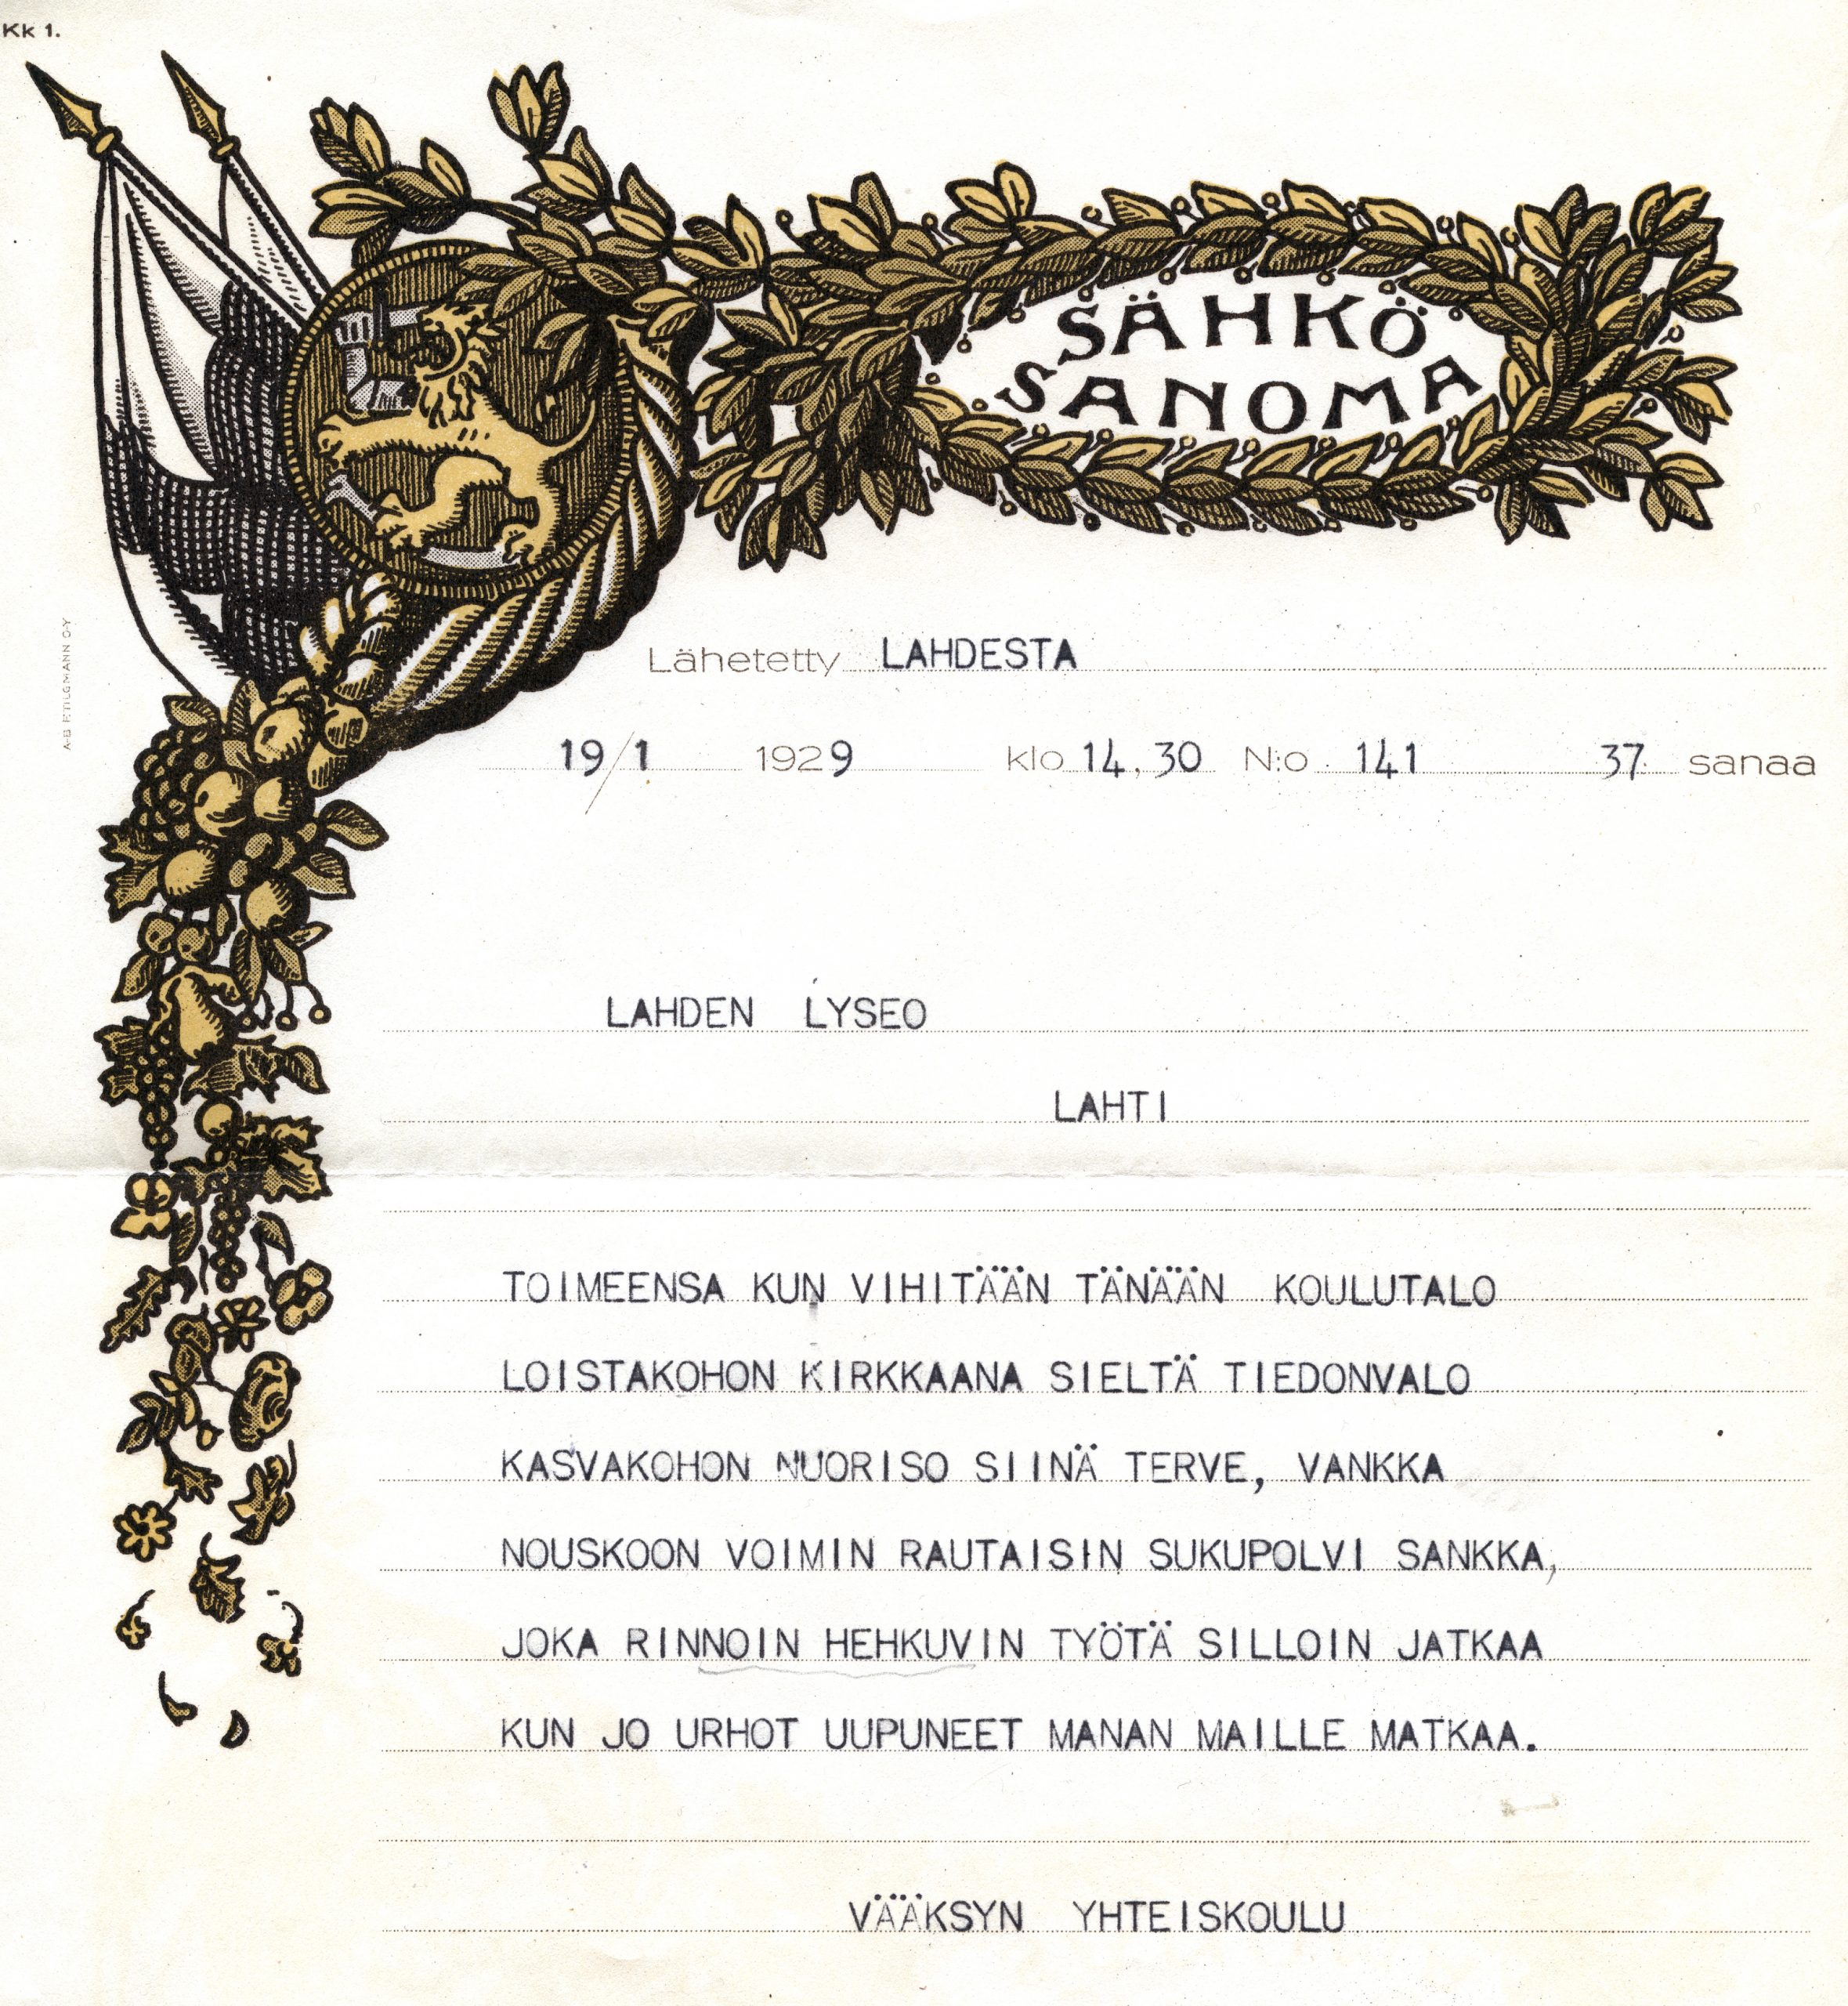 Kk 1.
SÄHKÖ
SANOMA
Lähetetty LAHDESTA
19/1 1929 klo 14,30 N:o 141 37 sanaa
LAHDEN LYSEO
LAHTI
TOIMEENSA KUN VIHITÄÄN TÄNÄÄN KOULUTALO
LOISTAKOHON KIRKKAANA SIELTÄ TIEDONVALO
KASVAKOHON NUORISO SIINÄ TERVE, VANKKA
NOUSKOON VOIMIN RAUTAISIN SUKUPOLVI SANKKA,
JOKA RINNOIN HEHKUVIN TYÖTÄ SILLOIN JATKAA
KUN JO URHOT UUPUNEET MANAN MAILLE MATKAA.
VÄÄKSYN YHTEISKOULU